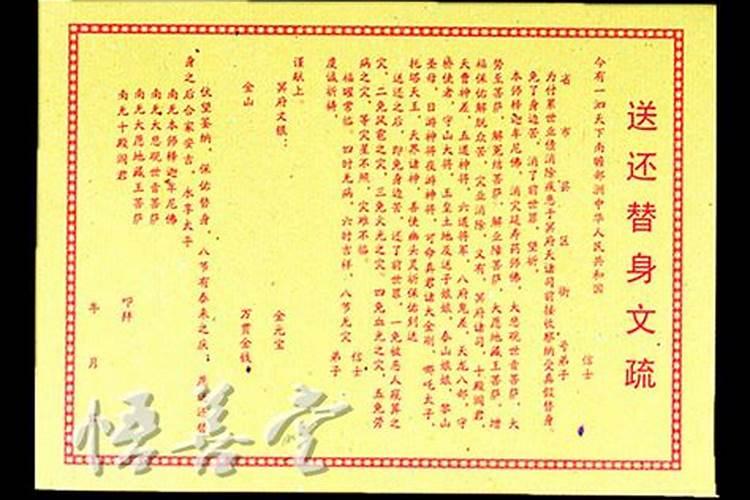 送还替身文疏
今有一泗天下南赡部洲中华人民共和国
省 市 县 区 街 号弟子 信士
为付累世业债消除疾患于冥府天诸司前接收黎纳受真假替身
免了身边苦,消了前世罪,望祈,
本师释迦牟尼佛,消灾延寿药师佛,大悲观世音菩萨,大
势至菩萨,解冤结菩萨,解业障菩萨,大愿地藏王菩萨,增
福保佑解脱众苦,灾业消除,又有,冥府诸司,十殿阎君,
天曹神差,五道神将,六道将军,八府鬼差,天龙八部,守
桥使者,守山大将,玉皇土地及送子娘娘,泰山娘娘,黎山
圣母,日游神将夜游神将,司命真君诸大金刚,哪吒太子,
托塔天王,天界诸神,善使幽头灵祈保佑到送
送还之后,即免身边苦,还了前世罪,一免被恶人疑算之
灾,二免风雹之灾,三免火光之灾,四免血光之灾,五免劳
病之灾,等灾星不照,灾难不临,
福耀常临,四时无病,六时吉祥,八节无灾 信士
虔诚祈祷, 弟子
谨献上。
冥府文银: 金元宝
金山 万贯金钱
伏望鉴纳,保佑替身,八节有泰来之庆;愿送还替
身之后合家安吉,永享太子
南无本师释迦牟尼佛
南无大悲观世音菩萨
南无大愿地藏王菩萨
南无十殿阎君 叩拜
年 月
悟善堂